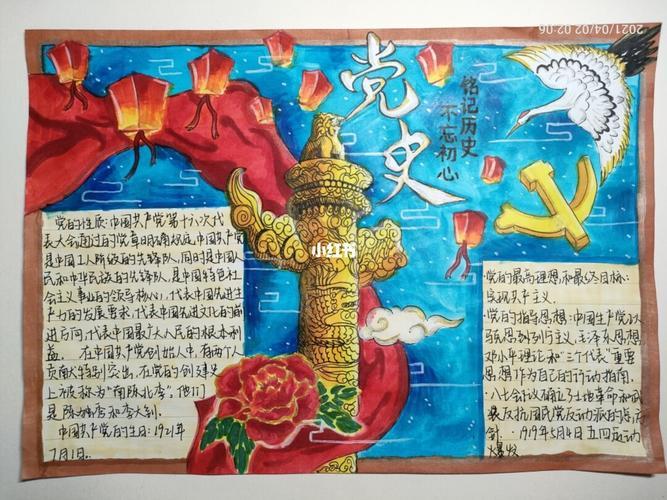 2021/04/02 02:06
党史
铭记历史
不忘初心
小红书
党的性质:中国共产党第十六次代
表大会通过的党章明确规定,中国共产党
是中国工人阶级的先锋队,同时是中国人
民和中华民族的先锋队,是中国特色社
会主义事业的领导核心,代表中国先进生
产力的发展要求,代表中国先进文化的前
进方向,代表中国最广大人民的根本利
益。 在中国共产党创始人中,有两个人
贡献特别突出,在党的创建史
上被称为"南陈北李",他们
是陈独秀和李大钊
中国共产党的生日:1921年
7月1日.
党的最高理想和最终目标:
实现共产主义.
·党的指导思想:中国共产党以
马克思列宁主义,毛泽东思想,
邓小平理论和"三个代表"重要
思想作为自己的行动指南.
·八七会议确定了土地革命和武
装反抗国民党反动派的总方
针. ·1919年5月4日五四运动
爆发